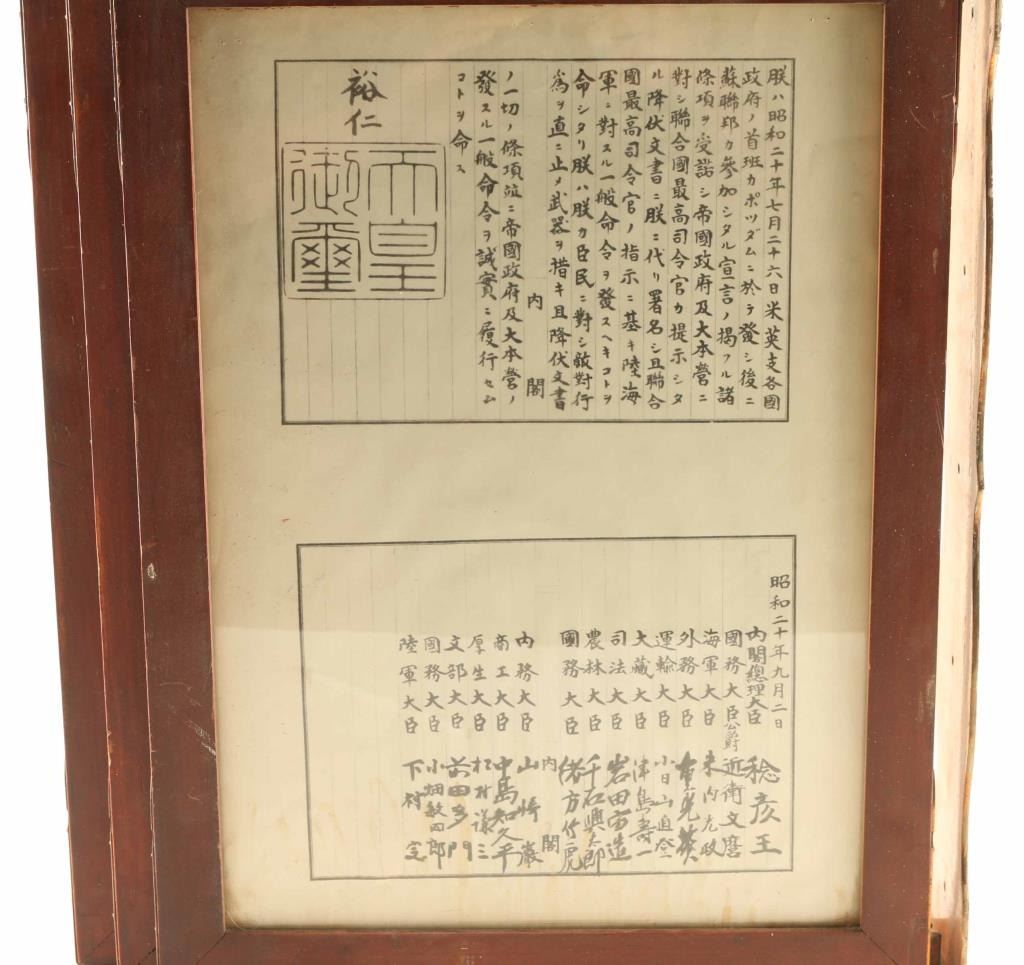 朕ハ昭和二十年七月二十六日米英支各國
政府ノ首班カポツダムニ於テ發シ後ニ
蘇聯邦カ參加シタル宣言ノ掲クル諸
條項ヲ受諾シ帝國政府及大本營ニ
對シ聯合國最高司令官カ提示シタ
ル降伏文書ニ朕ニ代リ署名シ且聯合
國最高司令官ノ指示ニ基キ陸海
軍ニ對スル一般命令ヲ發スヘキコトヲ
命シタリ朕ハ朕カ臣民ニ對シ敵對行
爲ヲ直ニ止メ武器ヲ措キ且降伏文書
內閣
ノ一切ノ條項竝ニ帝國政府及大本營ノ
發スル一般命令ヲ誠實ニ履行セム
コトヲ命ス
裕仁
天皇
御璽
昭和二十年九月二日
內閣總理大臣 稔彦王
國務大臣公爵 近衛文麿
海軍大臣 米內光政
外務大臣 重光葵
運輸大臣 小日山直登
大藏大臣 津島壽一
司法大臣 岩田宙造
農林大臣 千石興太郎
國務大臣 緒方竹虎
內閣
內務大臣 山崎巖
商工大臣 中島知久平
厚生大臣 松村謙三
文部大臣 前田多門
國務大臣 小畑敏四郎
陸軍大臣 下村定